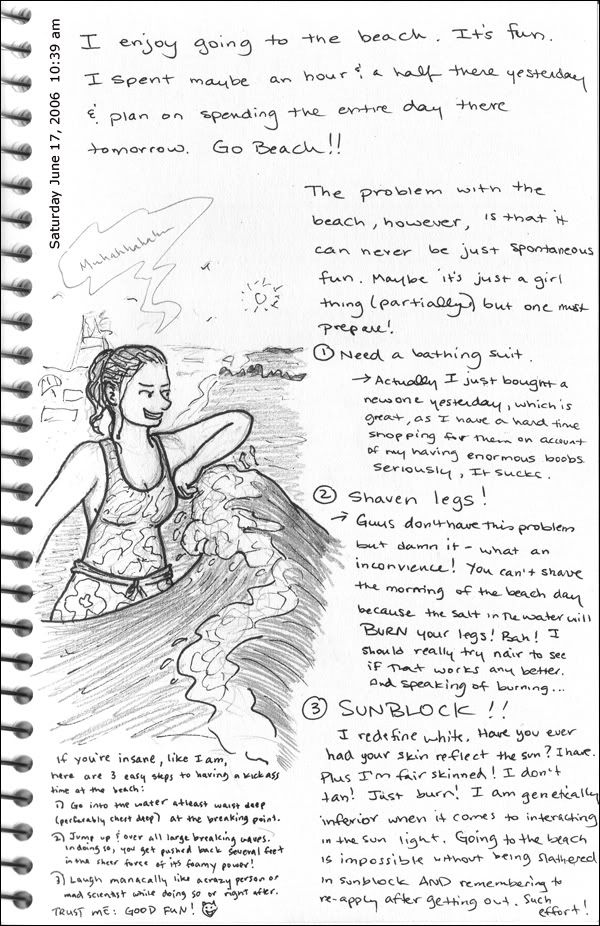 Saturday June 17, 2006 10:39 am
I enjoy going to the beach. It's fun.
I spent maybe an hour & a half there yesterday
& plan on spending the entire day there
tomorrow. Go Beach!!
The problem with the
beach, however, is that it
can never be just spontaneous
fun. Maybe it's just a girl
thing (partially) but one must
prepare!
① Need a bathing suit.
→ Actually I just bought a
new one yesterday, which is
great, as I have a hard time
shopping for them on account
of my having enormous boobs
Seriously, It sucks.
② Shaven legs!
→ Guys don't have this problem
but damn it - what an
inconvience! You can't shave
the morning of the beach day
because the salt in the water will
BURN your legs! Bah! I
should really try nair to see
if that works any better.
And speaking of burning...
③ SUNBLOCK!!
I redefine white. Have you ever
had your skin reflect the sun? I have.
Plus I'm fair skinned! I don't
tan! Just burn! I am genetically
inferior when it comes to interacting
in the sun light. Going to the beach
is impossible without being slathered
in sunblock AND remembering to
re-apply after getting out. Such
effort!
Muhahhahaha
If you're insane, like I am,
here are 3 easy steps to having a kickass
time at the beach:
1) Go into the water atleast waist deep
(perferably chest deep) at the breaking point.
2) Jump up & over all large breaking waves.
In doing so, you get pushed back several feet
in the sheer force of its foamy power!
3) Laugh manacally like a crazy person or
mad scientist while doing so or right after.
TRUST ME: GOOD FUN!